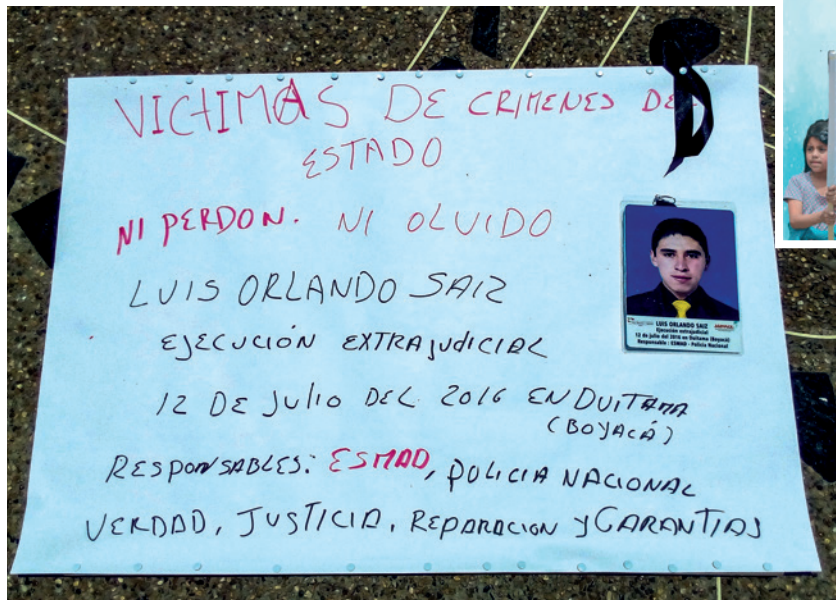 VICTIMAS DE CRIMENES DE
ESTADO
NI PERDON. NI OLVIDO
LUIS ORLANDO SAIZ
EJECUCIÓN EXTRAJUDICIAL
12 DE JULIO DEL 2016 EN DUITAMA
(BOYACÁ)
RESPONSABLES: ESMAD, POLICIA NACIONAL
VERDAD, JUSTICIA, REPARACION Y GARANTIAS
LUIS ORLANDO SAIZ
Ejecución extrajudicial
12 de julio del 2016 en Duitama (Boyacá)
Responsable : ESMAD - Policía Nacional